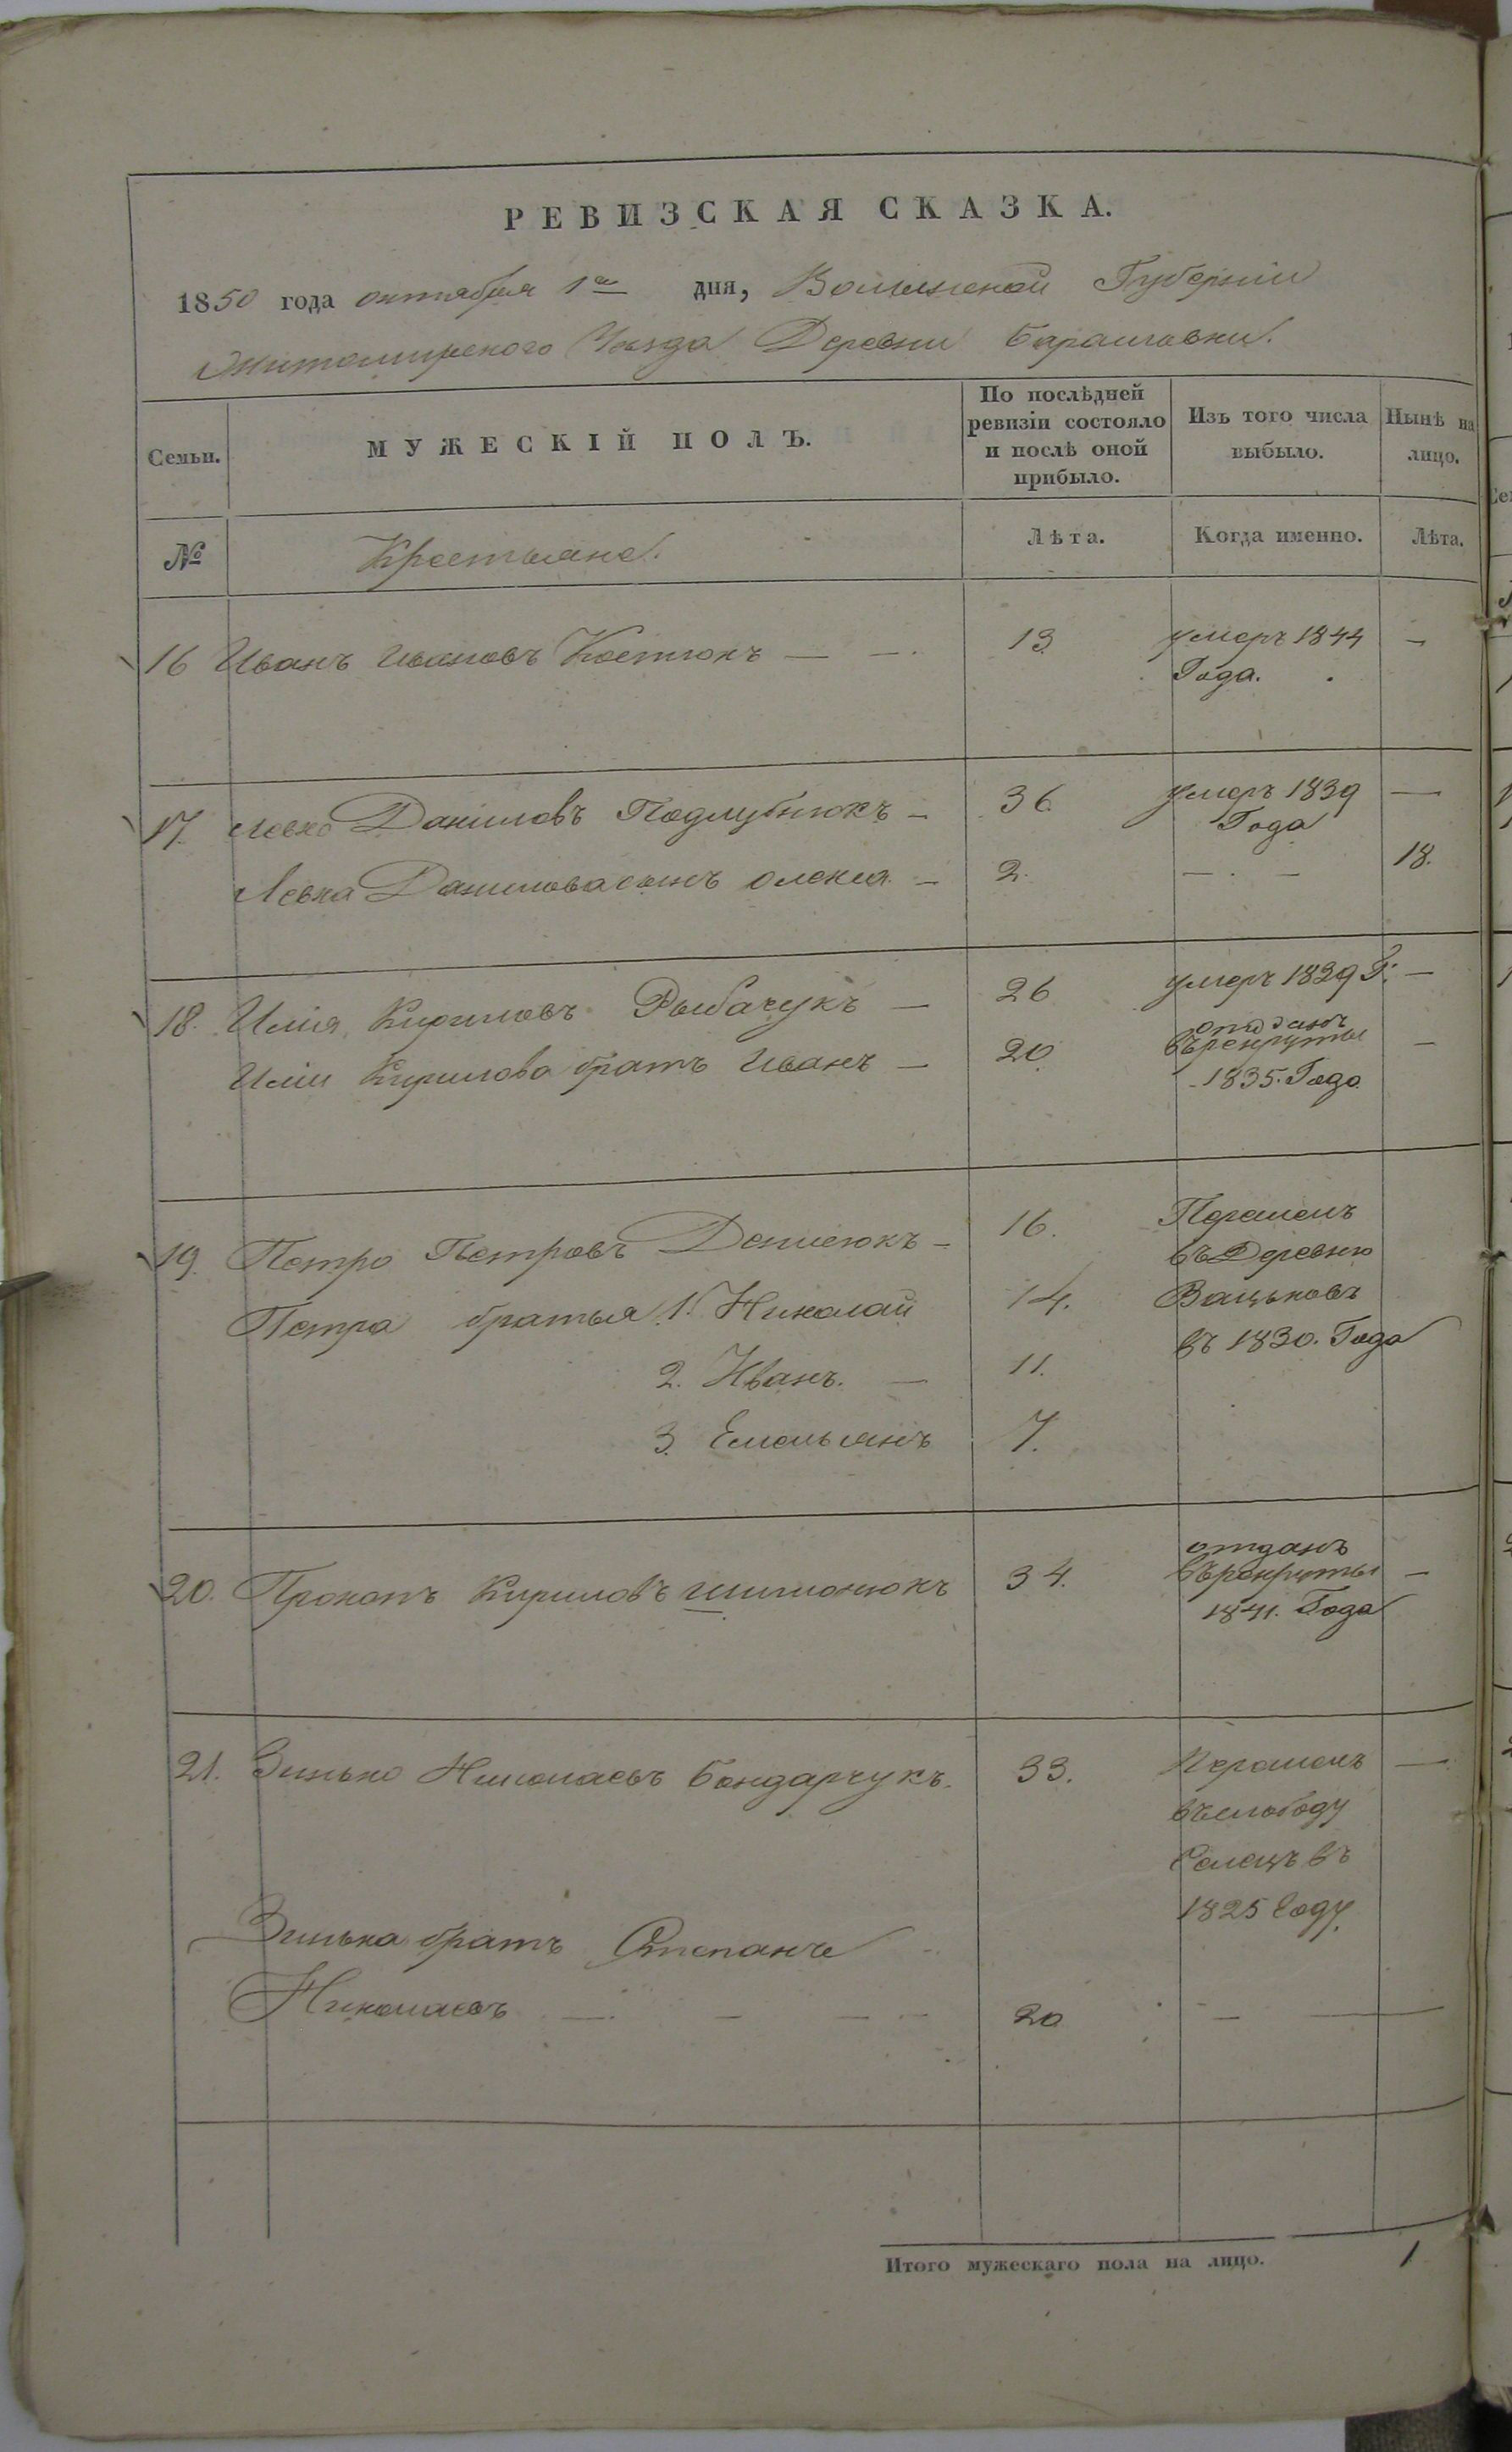 РЕВИЗСКАЯ СКАЗКА.
1850 года октября 1го дня, Волынской Губерніи
Житомирского Уѣзда Деревни Барашовки.
Семьи.
МУЖЕСКІЙ ПОЛЪ.
По послѣдней
ревизіи состояло
и послѣ оной
прибыло.
Изъ того числа
выбыло.
Нынѣ на
лицо.
№
Крестьяне.
Лѣта.
Когда именно.
Лѣта.
16 Иванъ Ивановъ Костюкъ — — 13. умеръ 1844 —
Года.
17. Левко Даниловъ Подлубнюкъ — 36. умеръ 1839 —
Года
Левка Данилова сынъ Олекса — 2. — — 18.
18. Илія Кириловъ Рыбачукъ — 26 умеръ 1839 Г. —
Иліи Кирилова братъ Иванъ — 20. отданъ
въ рекруты —
1835. Года
19. Петро Петровъ Денисюкъ — 16. Перемѣнъ
въ Деревню
Петра братья 1. Николай 14. Вацьковъ
въ 1830. Года
2. Иванъ. — 11.
3. Емельянъ 7.
20. Прокопъ Кириловъ Шимонюкъ 34. отданъ
въ рекруты —
1841. Года
21. Зинько Николаевъ Бондарчукъ. 33. —
въ слободу
въ
1825 Году.
Зинька братъ Степанъ
Николаевъ — — — 20 — —
Итого мужескаго пола на лицо. 1